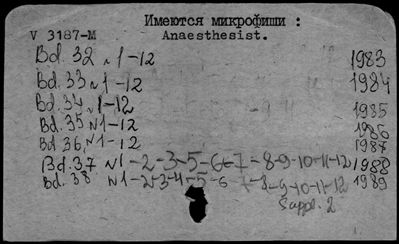 Имеются микрофиши :
V 3187-М Anaesthesist.
Bd. 32 N 1-12 1983
Bd. 33 N 1-12 1984
Bd. 34 N 1-12 1985
Bd. 35 N 1-12 1986
Bd. 36 N 1-12 1987
Bd. 37 N 1-2-3-5-6-7-8-9-10-11-12 1988
Bd. 38 N 1-2-3-4-5-6 7-8-9-10-11-12 1989
Suppl. 2